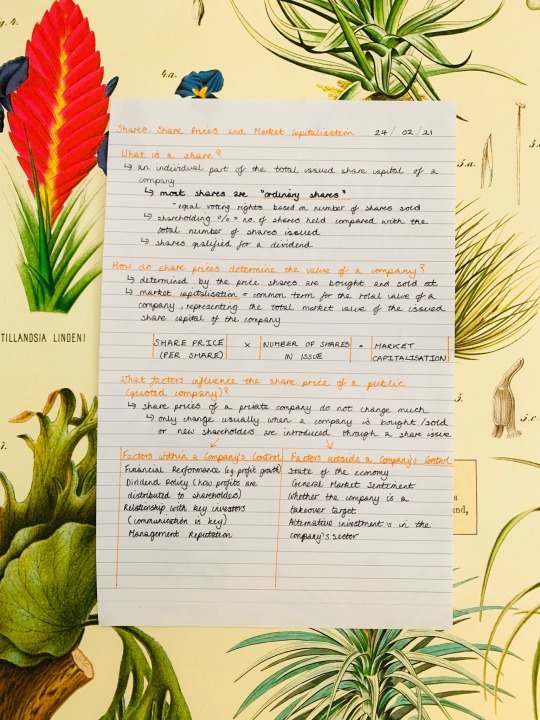 g. 4.
4.a.
Shares, Share Prices and Market Capitalisation 24 / 02 / 21
What is a share?
↳ an individual part of the total issued share capital of a
company
↳ most shares are "ordinary shares"
- equal voting rights based on number of shares sold
↳ shareholding % = no. of shares held compared with the
total number of shares issued
↳ shares qualified for a dividend
How do share prices determine the value of a company?
↳ determined by the price shares are bought and sold at
↳ market capitalisation = common term for the total value of a
company, representing the total market value of the issued
share capital of the company
SHARE PRICE (PER SHARE) × NUMBER OF SHARES IN ISSUE = MARKET CAPITALISATION
What factors influence the share price of a public
(quoted company)?
↳ share prices of a private company do not change much
↳ only change usually when a company is bought/sold
or new shareholders are introduced through a share issue
Factors within a Company's Control
Financial Performance (eg. profit growth)
Dividend Policy (how profits are
distributed to shareholders)
Relationship with key investors
(communication is key)
Management Reputation
Factors outside a Company's Control
State of the economy
General Market Sentiment
Whether the company is a
takeover target
Alternative investments in the
company's sector
TILLANDSIA LINDENI
5.a.
5.
5.c.